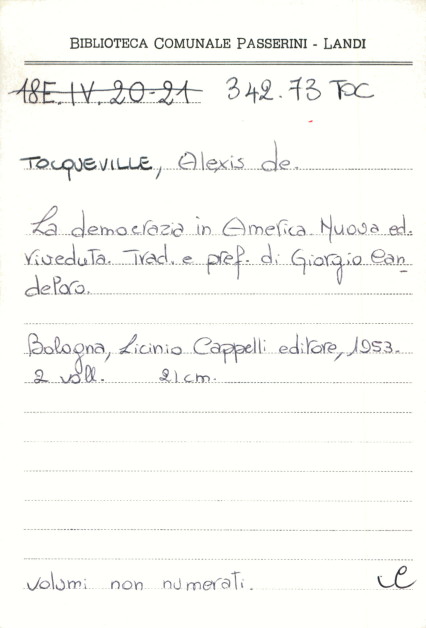 BIBLIOTECA COMUNALE PASSERINI - LANDI
18E.IV.20-21 342.73 TOC
TOCQUEVILLE, Alexis de.
La democrazia in America. Nuova ed.
riveduta. Trad. e pref. di Giorgio Can
deloro.
Bologna, Licinio Cappelli editore, 1953.
2 voll. 21cm.
volumi non numerati.